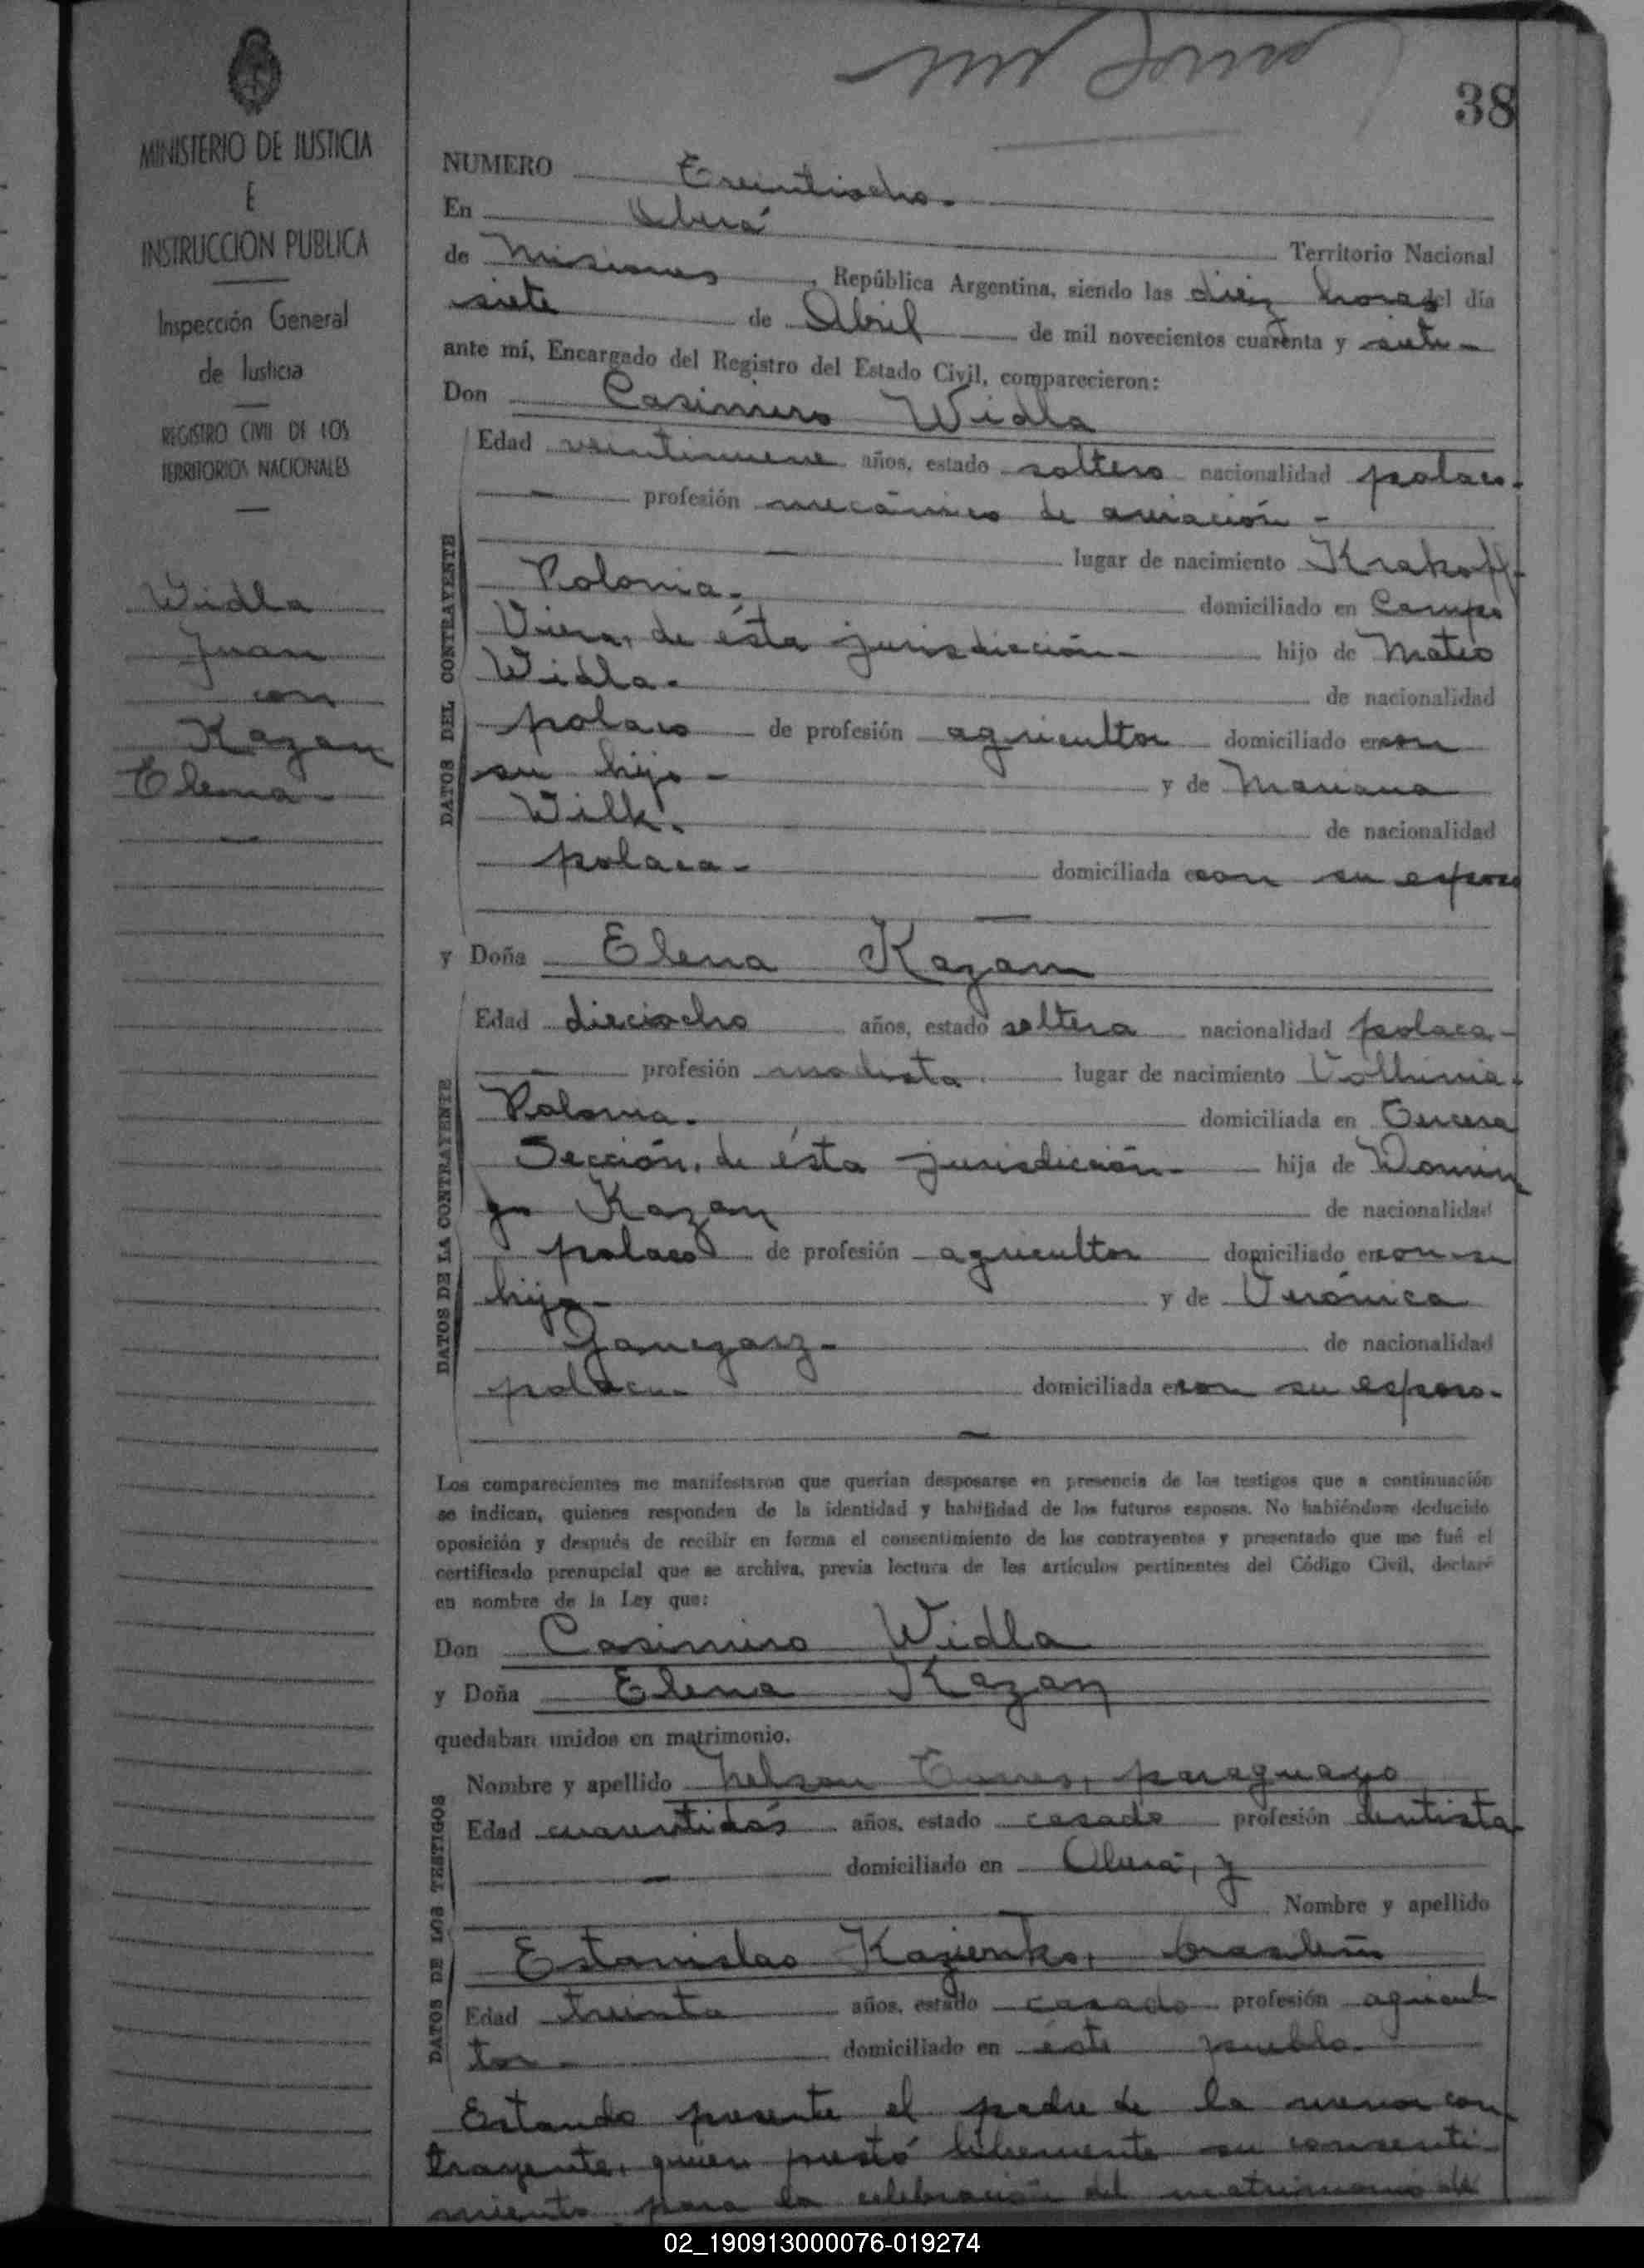 38
MINISTERIO DE JUSTICIA
E
INSTRUCCION PUBLICA
Inspección General
de Justicia
REGISTRO CIVIL DE LOS
TERRITORIOS NACIONALES
Widla
Juan
con
Kazan
Elena
NUMERO Treintiocho.
En Oberá
Territorio Nacional
de Misiones, República Argentina, siendo las diez horas del día
siete de Abril de mil novecientos cuarenta y siete
ante mí, Encargado del Registro del Estado Civil, comparecieron:
Don Casimiro Widla
DATOS DEL CONTRAYENTE
Edad veintinueve años, estado soltero nacionalidad polaco.
profesión mecánico de aviación -
lugar de nacimiento Krakoff-
Polonia. domiciliado en Campo
Viera, de ésta jurisdicción hijo de Mateo
Widla. de nacionalidad
polaco de profesión agricultor domiciliado en con
su hijo - y de Mariana
Wilk. de nacionalidad
polaca - domiciliada en con su esposo
y Doña Elena Kazan
DATOS DE LA CONTRAYENTE
Edad dieciocho años, estado soltera nacionalidad polaca -
profesión modista lugar de nacimiento
Polonia. domiciliada en Tercera
Sección, de ésta jurisdicción hija de Domin
go Kazan de nacionalidad
polaco de profesión agricultor domiciliado en con su
hija y de Verónica
de nacionalidad
polaca domiciliada en con su esposo.
Los comparecientes me manifestaron que querían desposarse en presencia de los testigos que a continuación
se indican, quienes responden de la identidad y habilidad de los futuros esposos. No habiéndose deducido
oposición y después de recibir en forma el consentimiento de los contrayentes y presentado que me fué el
certificado prenupcial que se archiva, previa lectura de los artículos pertinentes del Código Civil, declaré
en nombre de la Ley que:
Don Casimiro Widla
y Doña Elena Kazan
quedaban unidos en matrimonio.
DATOS DE LOS TESTIGOS
Nombre y apellido Nelson Torres, paraguayo
Edad cuarentidós años, estado casado profesión dentista
domiciliado en Oberá, y
Nombre y apellido
Estanislao Kozienko, brasileño
Edad treinta años, estado casado profesión agricul
tor domiciliado en éste pueblo.
Estando presente el padre de la menor con
trayente, quien prestó libremente su consenti
miento para la celebración del matrimonio de
02_190913000076-019274